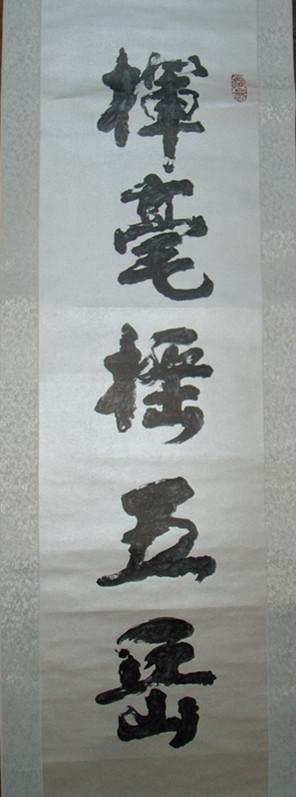 揮毫摇五岳